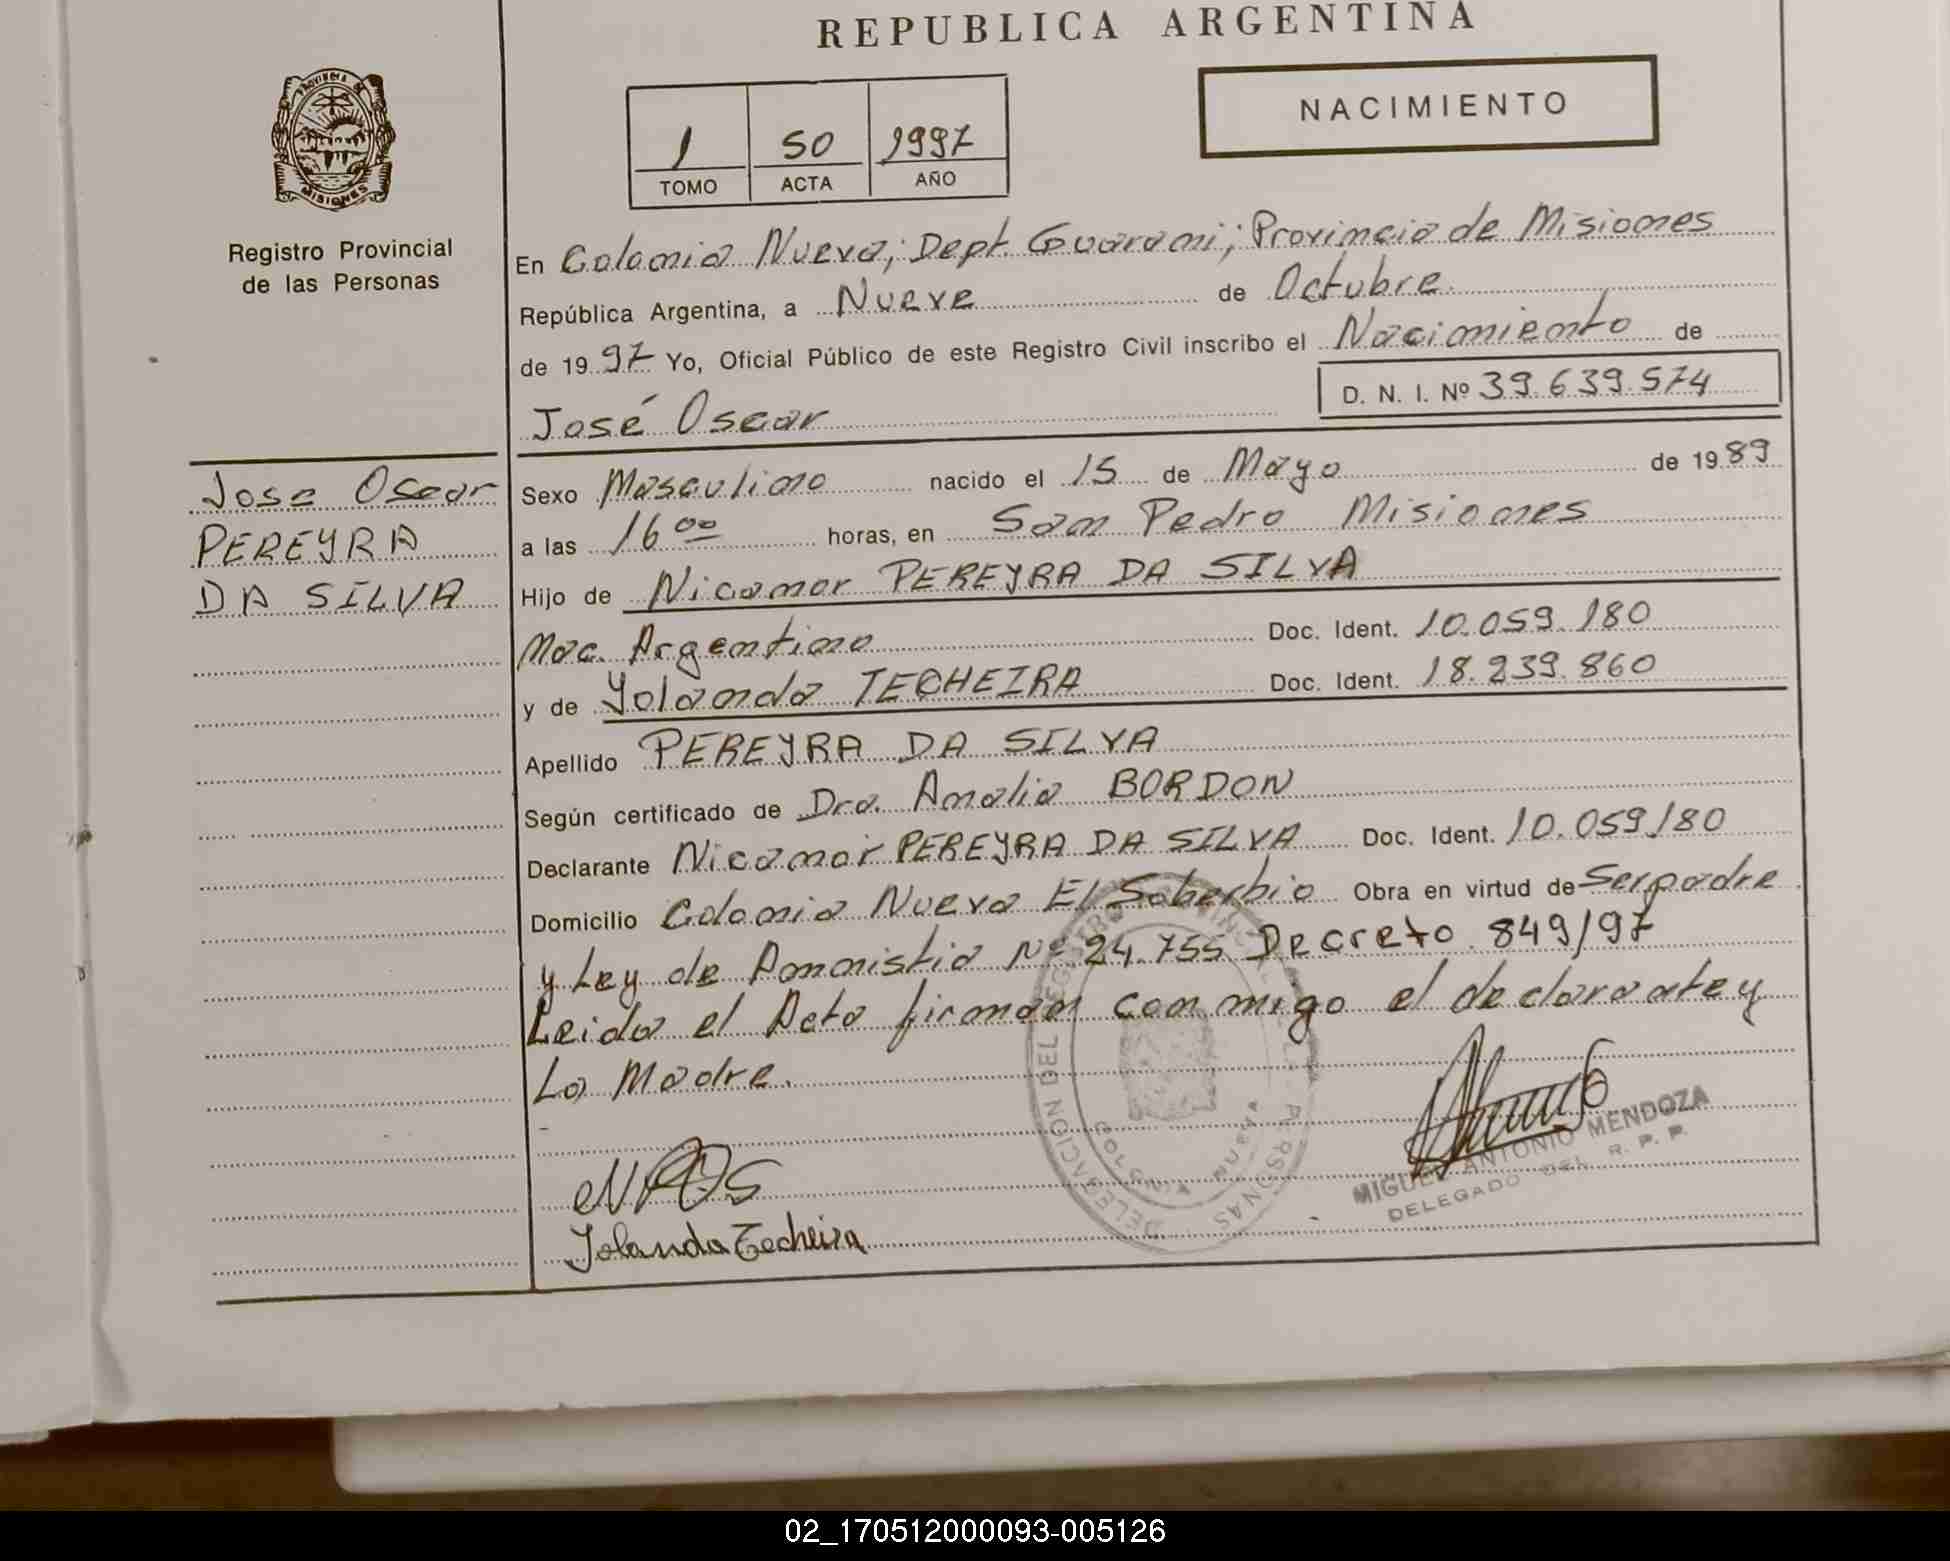 REPUBLICA ARGENTINA
PROVINCIA DE
MISIONES
Registro Provincial
de las Personas
1 50 1997
TOMO ACTA AÑO
NACIMIENTO
En Colonia Nueva; Dept. Guarani; Provincia de Misiones
República Argentina, a Nueve de Octubre
de 1997 Yo, Oficial Público de este Registro Civil inscribo el Nacimiento de
José Oscar D. N. I. Nº 39.639.574
Jose Oscar
PEREYRA
DA SILVA
Sexo Masculino nacido el 15 de Mayo de 1989
a las 16 00 horas, en San Pedro Misiones
Hijo de Nicanor PEREYRA DA SILVA
Nac. Argentino Doc. Ident. 10.059.180
y de Yolanda TECHEIRA Doc. Ident. 18.239.860
Apellido PEREYRA DA SILVA
Según certificado de Dra. Amalia BORDON
Declarante Nicanor PEREYRA DA SILVA Doc. Ident. 10.059180
Domicilio Colonia Nueva El Soberbio Obra en virtud de Ser padre
y Ley de Amnistia Nº 24.755 Decreto 849/97
Leida el Acta firman conmigo el declarante y
La Madre.
DELEGACION DEL REGISTRO PROVINCIAL DE LAS PERSONAS
COLONIA NUEVA
MIGUEL ANTONIO MENDOZA
DELEGADO DEL R. P. P.
Yolanda Techeira
02_170512000093-005126